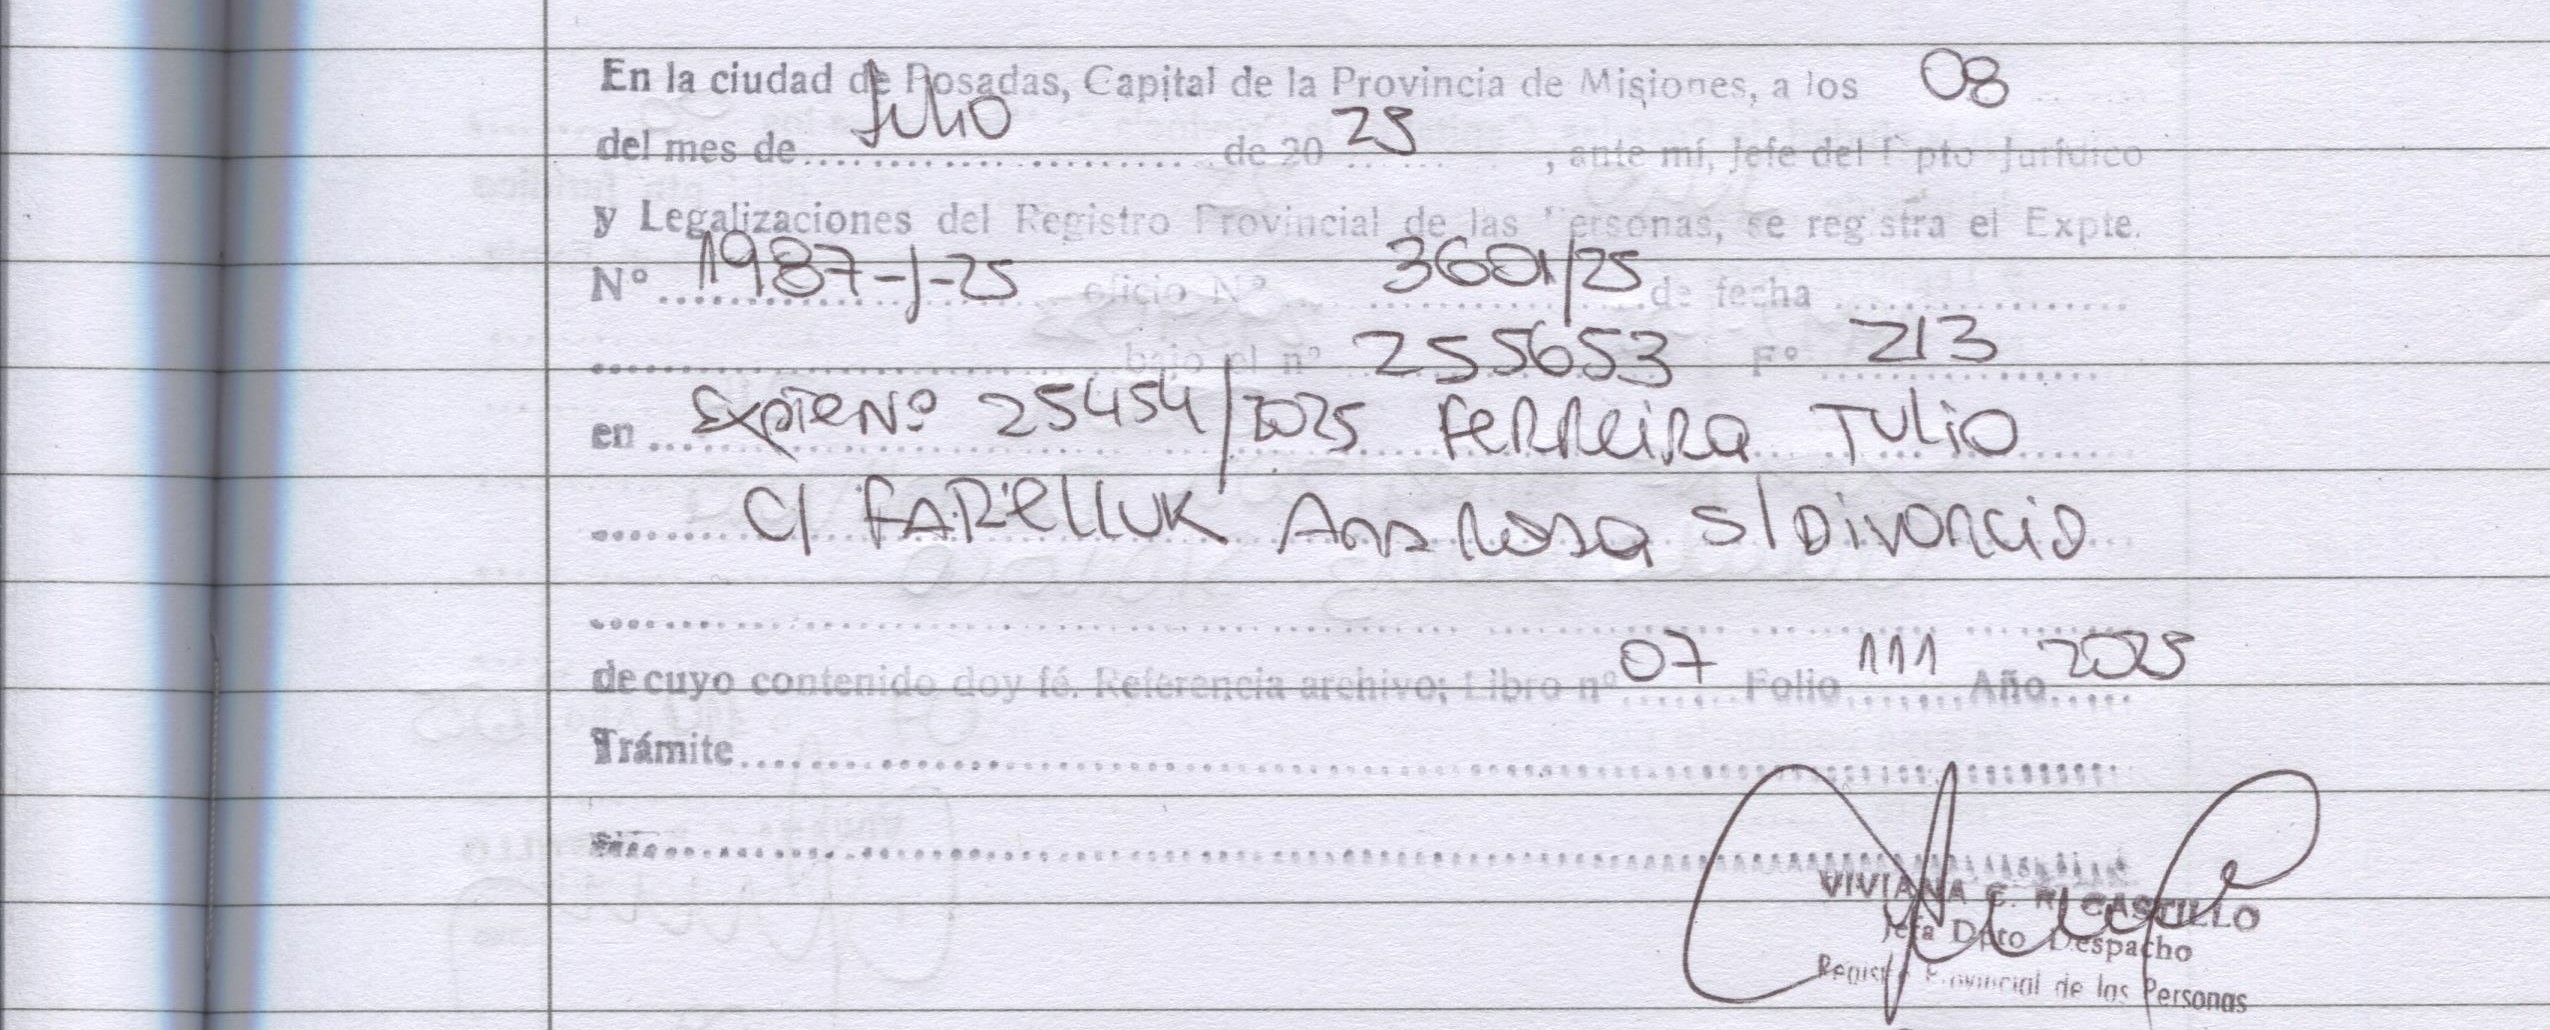 En la ciudad de Posadas, Capital de la Provincia de Misiones, a los 08
del mes de Julio de 20 25, ante mí, Jefe del Dpto Jurídico
y Legalizaciones del Registro Provincial de las Personas, se registra el Expte.
Nº 1987-J-25 oficio Nº 3601/25 de fecha
bajo el nº 255653 Fº 213
en Expte Nº 25454/2025 Ferreira Julio
C/ FARElluk Ana Rosa S/Divorcio
de cuyo contenido doy fé. Referencia archivo; Libro nº 07 Folio 111 Año 2025
Trámite
VIVIANA C. R. CASTILLO
Jefa Dpto Despacho
Registro Provincial de las Personas